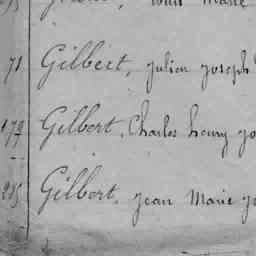 Marie
71 Gilbert, Julien Joseph
179 Gilbert, Charles henry
285 Gilbert, Jean Marie